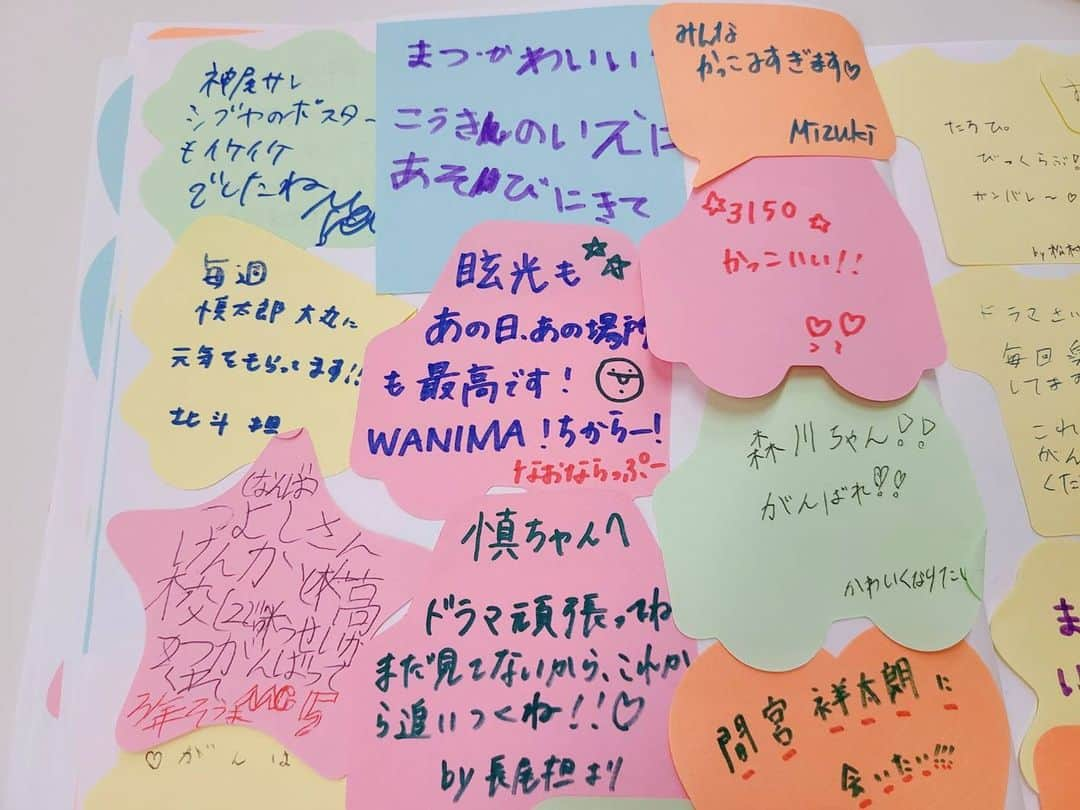 神尾サン
シブヤのポスター
もイケイケ
でしたね
まつかわいい
こうきんのいえに
あそびにきて
みんな
かっこよすぎます♡
Mizuki
たろぴ。
びっくらぶ
ガンバレ〜♡
by 松村
☆3150☆
かっこいい!!
♡♡
毎週
慎太郎 大丸に
元気をもらってます!!
北斗担
眩光も☆☆
あの日、あの場所
も最高です!
WANIMA!ちからー!
なおならっぷー
森川ちゃん!!
がんばれ!!
かわいくなりたい
ドラマ
毎回
してます
これ
がん
くだ
(なんば)
つよしさん
がんばって
3年
慎ちゃんへ
ドラマ頑張ってね
まだ見てないから、これか
ら追いつくね!!♡
by 長尾担より
間宮祥太朗に
会いたい!!!
♡がんば